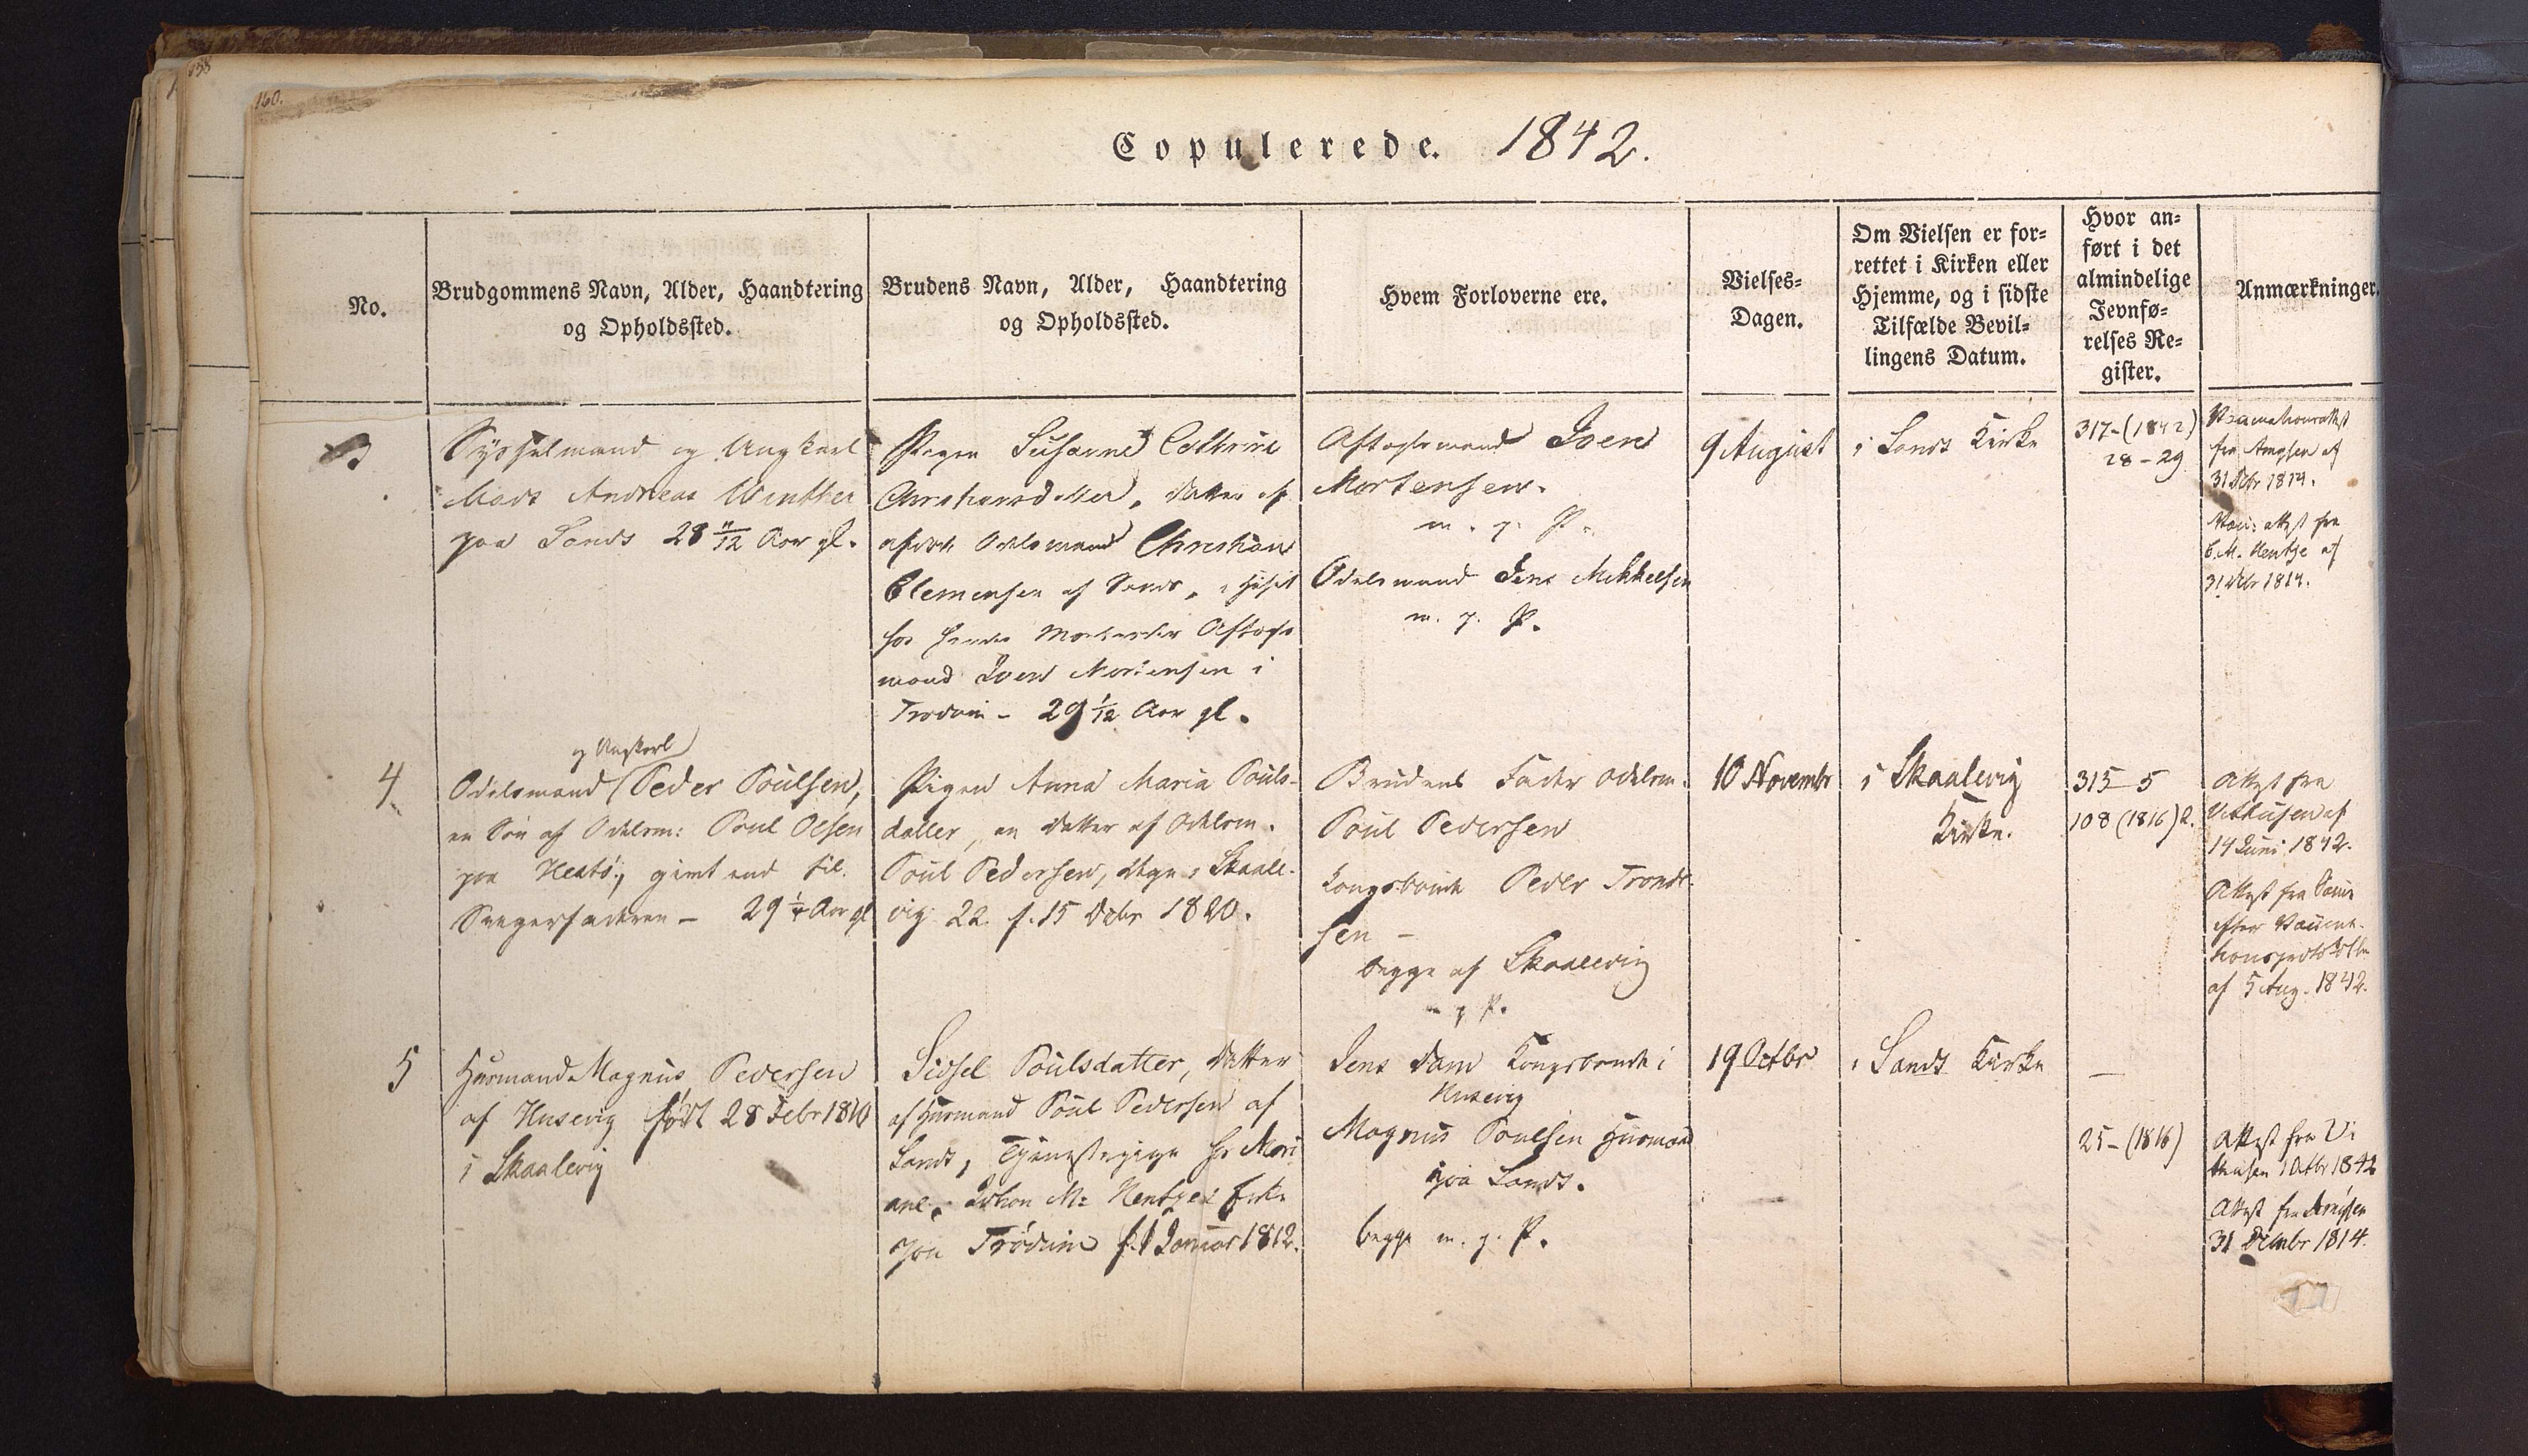 160.
Copulerede. 1842.
No.
Brudgommens Navn, Alder, Haandtering
og Opholdssted.
Brudens Navn, Alder, Haandtering
og Opholdssted.
Hvem Forloverne ere.
Vielses-
Dagen.
Om Vielsen er for-
rettet i Kirken eller
Hjemme, og i sidste
Tilfælde Bevil-
lingens Datum.
Hvor an-
ført i det
almindelige
Jevnfø-
relses Re-
gister.
Anmærkninger.
3
Sysselmand og Ungkarl
Mads Andreas Winther
paa Sands 28 11/12 Aar gl.
Pigen Susanne Cathrine
Christiansdatter, Datter af
afdøde Odelsmand Christian
Clemensen af Sands, i Huset
hos hendes Aftægts
mand Joen Mortensen i
Trødum - 29 1/12 Aar gl.
Aftægtsmand Joen
Mortensen.
m. p. P.
Odelsmand Jens Mikkelsen
m. p. P.
9 August
i Sands Kirke
317-(1842)
28-29
Vaccinationsattest
fra af
31 Decbr 1814.
Vac: attest fra
C. M. Hentze af
31 Decbr 1814.
4
og Ungkarl
Odelsmand Peder Poulsen,
en Søn af Odelsm: Poul Olsen
paa givt ind til
Svigerfaderen - 29 1/4 Aar gl
Pigen Anna Maria Pouls-
datter, en Datter af Odelsm.
Poul Pedersen, Skaale-
vig 22. f. 15 Decbr 1820.
Brudens Fader Odelsm.
Poul Pedersen
Kongsbonde Peder Trond-
sen -
begge af Skaalevig
m. p. P.
10 Novembr
i Skaalevig
Kirke.
315-5
108 (1816) 2.
Attest fra
af
14 Juni 1842.
Attest fra Samme
efter Vaccina-
tionsprotokollen
af 5 Aug. 1842.
5
Huusmand Magnus Pedersen
af Husevig født 28 Febr 1810
i Skaalevig
Sidsel Poulsdatter, Datter
af Huusmand Poul Pedersen af
Sands, Tjenestepige hos
Johan M: Hentzes Enke
paa Trødum f. 1 Januar 1812.
Jens Dam Kongsbonde i
Husevig
Magnus Poulsen Huusmand
paa Sands.
begge m. p. P.
19 Octbr
i Sands Kirke
—
25-(1816)
Attest fra
1 Octbr 1842
Attest fra
31 Decmbr 1814.